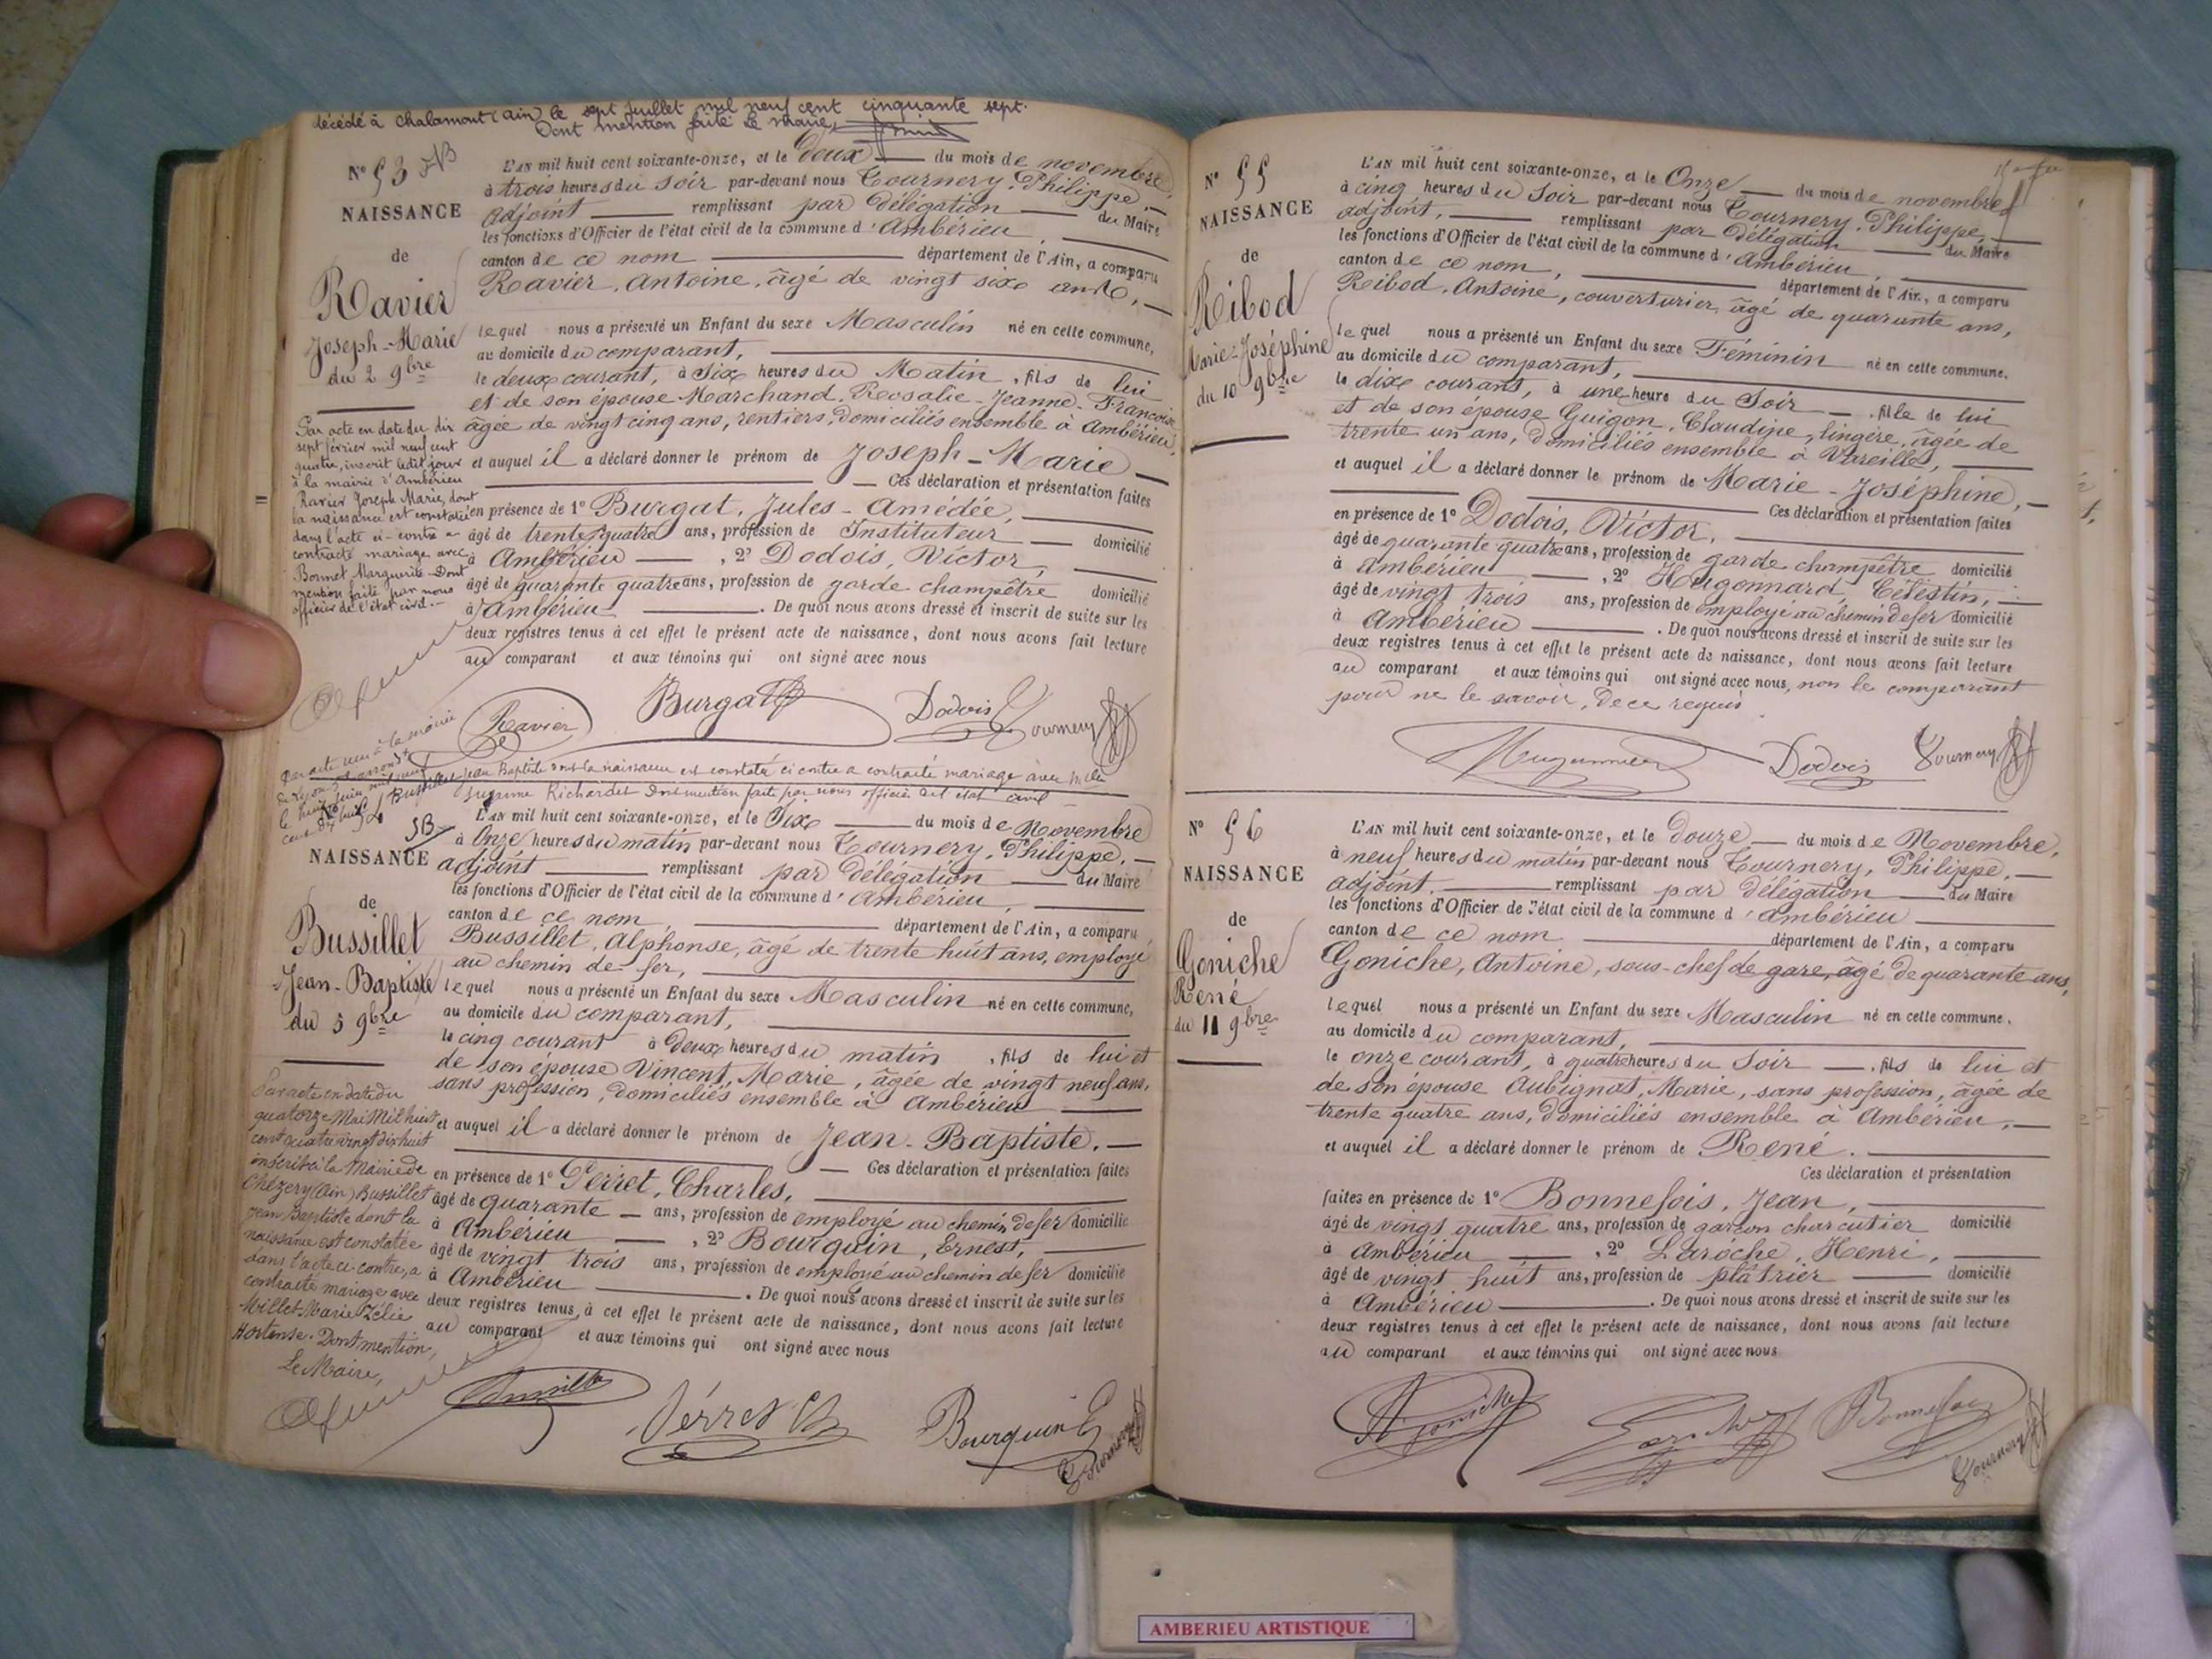 décédé à Chalamont (Ain) le sept juillet mil neuf cent cinquante sept.
Dont mention faite Le maire,
N° 53
NAISSANCE
de
Ravier
Joseph-Marie
du 2 9bre
L'AN mil huit cent soixante-onze, et le deux du mois de novembre
à trois heures du soir par-devant nous Tournery, Philippe,
adjoint remplissant par délégation du Maire
les fonctions d'Officier de l'état civil de la commune d'Ambérieu,
canton de ce nom département de l'Ain, a comparu
Ravier, Antoine, âgé de vingt six ans,
lequel nous a présenté un Enfant du sexe Masculin né en cette commune,
au domicile du comparant,
le deux courant, à Six heures du Matin, fils de lui
et de son épouse Marchand, Rosalie-Jeanne-Françoise
âgée de vingt cinq ans, rentiers, domiciliés ensemble à Ambérieu,
et auquel il a déclaré donner le prénom de Joseph-Marie
Ces déclaration et présentation faites
en présence de 1° Burgat, Jules-Amédée,
âgé de trente quatre ans, profession de Instituteur domicilié
à Ambérieu, 2° Dodois, Victor,
âgé de quarante quatre ans, profession de garde champêtre domicilié
à Ambérieu. De quoi nous avons dressé et inscrit de suite sur les
deux registres tenus à cet effet le présent acte de naissance, dont nous avons fait lecture
au comparant et aux témoins qui ont signé avec nous
Par acte en date du dix
sept février mil neuf cent
quatre, inscrit ledit jour
à la mairie d'Ambérieu
Ravier Joseph Marie, dont
la naissance est constatée
dans l'acte ci-contre a
contracté mariage avec
Bonnet Marguerite. Dont
mention faite par nous
officier de l'état civil.
Ravier Burgat Dodois Tournery
Par acte reçu à la mairie
de Lyon arrondt
le huit juin mil neuf
cent dix huit Bussillet Jean Baptiste dont la naissance est constatée ci contre a contracté mariage avec Melle
Suzanne Richardet Dont mention faite par nous officier de l'état civil
N° 54
NAISSANCE
de
Bussillet
Jean-Baptiste
du 5 9bre
L'AN mil huit cent soixante-onze, et le Six du mois de Novembre
à Onze heures du matin par-devant nous Tournery, Philippe,
adjoint remplissant par délégation du Maire
les fonctions d'Officier de l'état civil de la commune d'Ambérieu,
canton de ce nom département de l'Ain, a comparu
Bussillet, Alphonse, âgé de trente huit ans, employé
au chemin de fer,
lequel nous a présenté un Enfant du sexe Masculin né en cette commune,
au domicile du comparant,
le cinq courant à deux heures du matin, fils de lui et
de son épouse Vincent, Marie, âgée de vingt neuf ans,
sans profession, domiciliés ensemble à Ambérieu
et auquel il a déclaré donner le prénom de Jean-Baptiste.
Ces déclaration et présentation faites
en présence de 1° Perret, Charles,
âgé de quarante ans, profession de employé au chemin de fer domicilié
à Ambérieu, 2° Bourquin, Ernest,
âgé de vingt trois ans, profession de employé au chemin de fer domicilié
à Ambérieu. De quoi nous avons dressé et inscrit de suite sur les
deux registres tenus à cet effet le présent acte de naissance, dont nous avons fait lecture
au comparant et aux témoins qui ont signé avec nous
Par acte en date du
quatorze Mai Mil huit
cent quatre vingt dix huit
inscrit à la Mairie de
Chézery (Ain) Bussillet
Jean Baptiste dont la
naissance est constatée
dans l'acte ci-contre, a
contracté mariage avec
Millet Marie Zélie
Hortense. Dont mention,
Le Maire,
Perret Ch Bourquin E Tournery
N° 55
NAISSANCE
de
Ribod
Marie-Joséphine
du 10 9bre
L'AN mil huit cent soixante-onze, et le Onze du mois de novembre
à cinq heures du Soir par-devant nous Tournery, Philippe,
adjoint, remplissant par délégation du Maire
les fonctions d'Officier de l'état civil de la commune d'Ambérieu,
canton de ce nom, département de l'Ain, a comparu
Ribod, Antoine, couverturier, âgé de quarante ans,
lequel nous a présenté un Enfant du sexe Féminin né en cette commune,
au domicile du comparant,
le dix courant, à une heure du Soir, fille de lui
et de son épouse Guigon, Claudine, lingère, âgée de
trente un ans, domiciliés ensemble à Vareilles,
et auquel il a déclaré donner le prénom de Marie-Joséphine,
Ces déclaration et présentation faites
en présence de 1° Dodois, Victor,
âgé de quarante quatre ans, profession de garde champêtre domicilié
à Ambérieu, 2° Hugonnard, Célestin,
âgé de vingt trois ans, profession de employé au chemin de fer domicilié
à Ambérieu. De quoi nous avons dressé et inscrit de suite sur les
deux registres tenus à cet effet le présent acte de naissance, dont nous avons fait lecture
au comparant et aux témoins qui ont signé avec nous, non le comparant
pour ne le savoir, de ce requis
Hugonnard Dodois Tournery
N° 56
NAISSANCE
de
Goniche
René
du 11 9bre
L'AN mil huit cent soixante-onze, et le douze du mois de Novembre,
à neuf heures du matin par-devant nous Tournery, Philippe,
adjoint. remplissant par délégation du Maire
les fonctions d'Officier de l'état civil de la commune d'Ambérieu
canton de ce nom département de l'Ain, a comparu
Goniche, Antoine, sous-chef de gare, âgé de quarante ans,
lequel nous a présenté un Enfant du sexe Masculin né en cette commune,
au domicile du comparant,
le onze courant, à quatre heures du Soir, fils de lui et
de son épouse Aubignat, Marie, sans profession, âgée de
trente quatre ans, domiciliés ensemble à Ambérieu,
et auquel il a déclaré donner le prénom de René.
Ces déclaration et présentation
faites en présence de 1° Bonnefois, Jean,
âgé de vingt quatre ans, profession de garçon charcutier domicilié
à Ambérieu, 2° Laroche, Henri,
âgé de vingt huit ans, profession de plâtrier domicilié
à Ambérieu. De quoi nous avons dressé et inscrit de suite sur les
deux registres tenus à cet effet le présent acte de naissance, dont nous avons fait lecture
au comparant et aux témoins qui ont signé avec nous
Goniche Bonnefois Tournery
AMBERIEU ARTISTIQUE